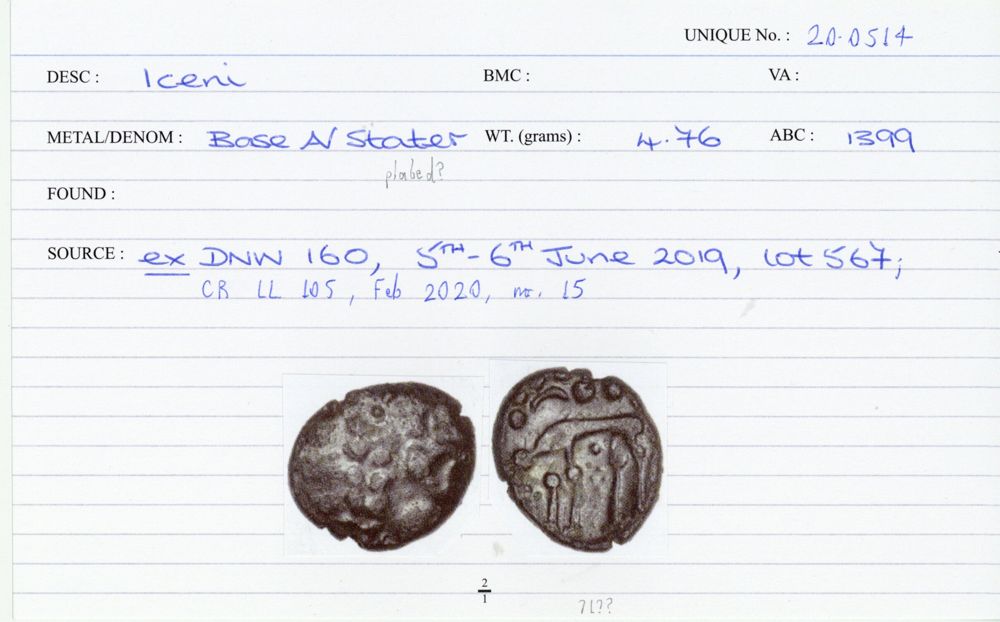 UNIQUE No. : 20-0514
DESC : Iceni BMC : VA :
METAL/DENOM : Base N Stater WT. (grams) : 4.76 ABC : 1399
plated?
FOUND :
SOURCE : ex DNW 160, 5TH-6TH June 2019, lot 567;
CR LL 105, Feb 2020, no. 15
2
1